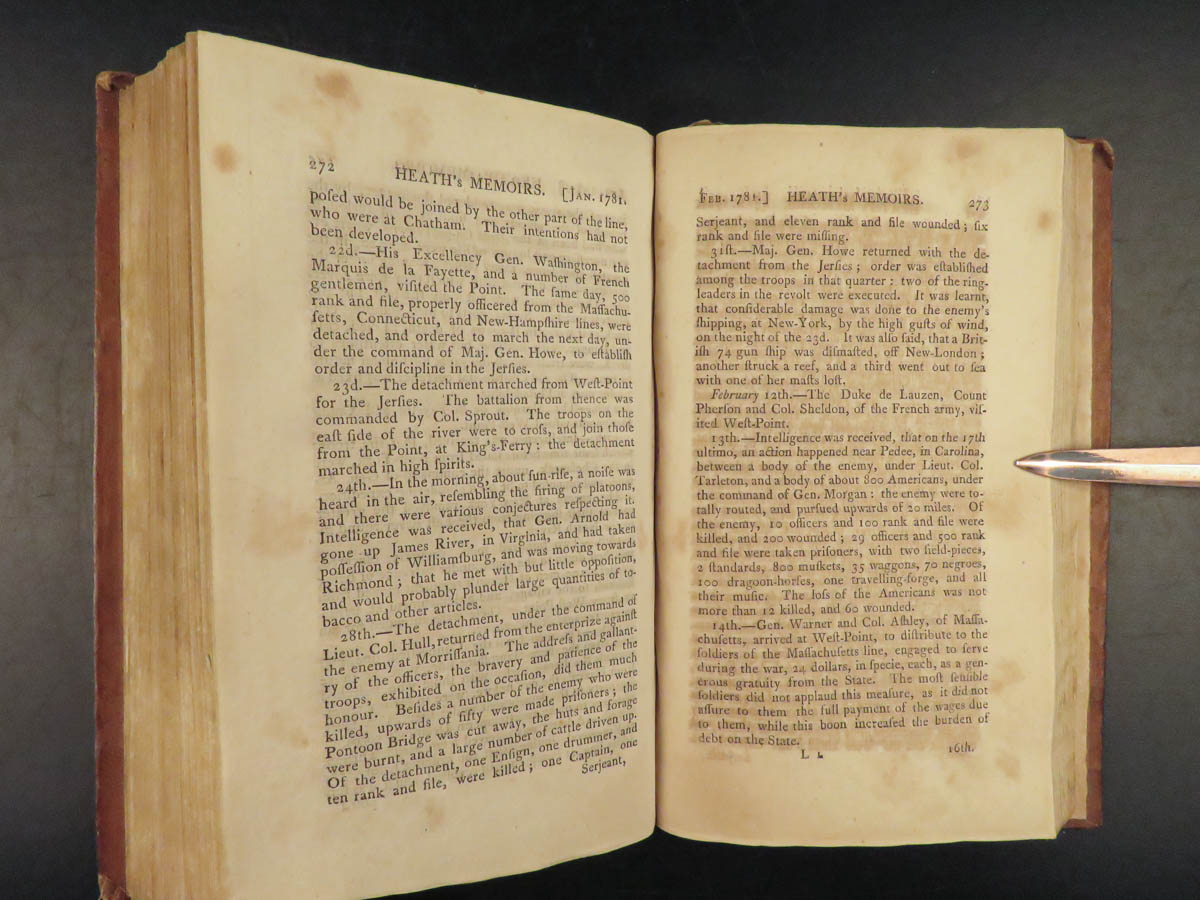 272 HEATH's MEMOIRS. [JAN. 1781.
poſed would be joined by the other part of the line,
who were at Chatham. Their intentions had not
been developed.
22d.—His Excellency Gen. Waſhington, the
Marquis de la Fayette, and a number of French
gentlemen, viſited the Point. The ſame day, 500
rank and file, properly officered from the Maſſachu-
ſetts, Connecticut, and New-Hampſhire lines, were
detached, and ordered to march the next day, un-
der the command of Maj. Gen. Howe, to eſtabliſh
order and diſcipline in the Jerſies.
23d.—The detachment marched from Weſt-Point
for the Jerſies. The battalion from thence was
commanded by Col. Sprout. The troops on the
eaſt ſide of the river were to croſs, and join thoſe
from the Point, at King's-Ferry: the detachment
marched in high ſpirits.
24th.—In the morning, about ſun-riſe, a noiſe was
heard in the air, reſembling the firing of platoons,
and there were various conjectures reſpecting it.
Intelligence was received, that Gen. Arnold had
gone up James River, in Virginia, and had taken
poſſeſſion of Williamſburg, and was moving towards
Richmond; that he met with but little oppoſition,
and would probably plunder large quantities of to-
bacco and other articles.
28th.—The detachment, under the command of
Lieut. Col. Hull, returned from the enterprize againſt
the enemy at Morriſſania. The addreſs and gallant-
ry of the officers, the bravery and patience of the
troops, exhibited on the occaſion, did them much
honour. Beſides a number of the enemy who were
killed, upwards of fifty were made priſoners; the
Pontoon Bridge was cut away, the huts and forage
were burnt, and a large number of cattle driven up.
Of the detachment, one Enſign, one drummer, and
ten rank and file, were killed; one Captain, one
Serjeant,
FEB. 1781.] HEATH's MEMOIRS. 273
Serjeant, and eleven rank and file wounded; ſix
rank and file were miſſing.
31ſt.—Maj. Gen. Howe returned with the de-
tachment from the Jerſies; order was eſtabliſhed
among the troops in that quarter: two of the ring-
leaders in the revolt were executed. It was learnt,
that conſiderable damage was done to the enemy's
ſhipping, at New-York, by the high guſts of wind,
on the night of the 23d. It was alſo ſaid, that a Brit-
iſh 74 gun ſhip was diſmaſted, off New-London;
another ſtruck a reef, and a third went out to ſea
with one of her maſts loſt.
February 12th.—The Duke de Lauzen, Count
Pherſon and Col. Sheldon, of the French army, viſ-
ited Weſt-Point.
13th.—Intelligence was received, that on the 17th
ultimo, an action happened near Pedee, in Carolina,
between a body of the enemy, under Lieut. Col.
Tarleton, and a body of about 800 Americans, under
the command of Gen. Morgan: the enemy were to-
tally routed, and purſued upwards of 20 miles. Of
the enemy, 10 officers and 100 rank and file were
killed, and 200 wounded; 29 officers and 500 rank
and file were taken priſoners, with two field-pieces,
2 ſtandards, 800 muſkets, 35 waggons, 70 negroes,
100 dragoon-horſes, one travelling-forge, and all
their muſic. The loſs of the Americans was not
more than 12 killed, and 60 wounded.
14th.—Gen. Warner and Col. Aſhley, of Maſſa-
chuſetts, arrived at Weſt-Point, to diſtribute to the
ſoldiers of the Maſſachuſetts line, engaged to ſerve
during the war, 24 dollars, in ſpecie, each, as a gen-
erous gratuity from the State. The moſt ſenſible
ſoldiers did not applaud this meaſure, as it did not
aſſure to them the full payment of the wages due
to them, while this boon increaſed the burden of
debt on the State.
L L 16th.